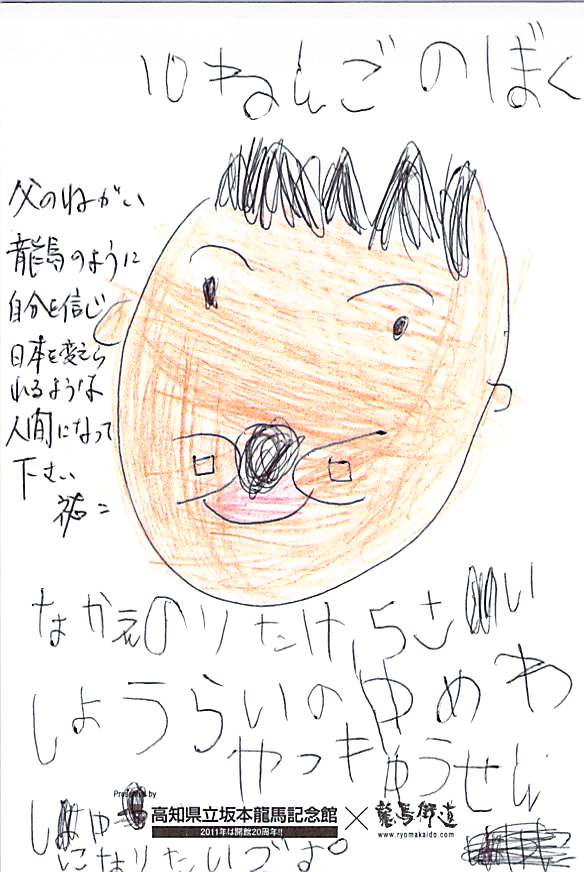 10ねんごのぼく
父のねがい
龍馬のように
自分を信じ
日本を変えら
れるような
人間になって
下さい
なかえのりたけ 5さい
しょうらいのゆめわ
やっきゅうせん
しゅ
になりたいです。
Presented by
高知県立坂本龍馬記念館
2011年は開館20周年!!
×
龍馬街道
www.ryomakaido.com